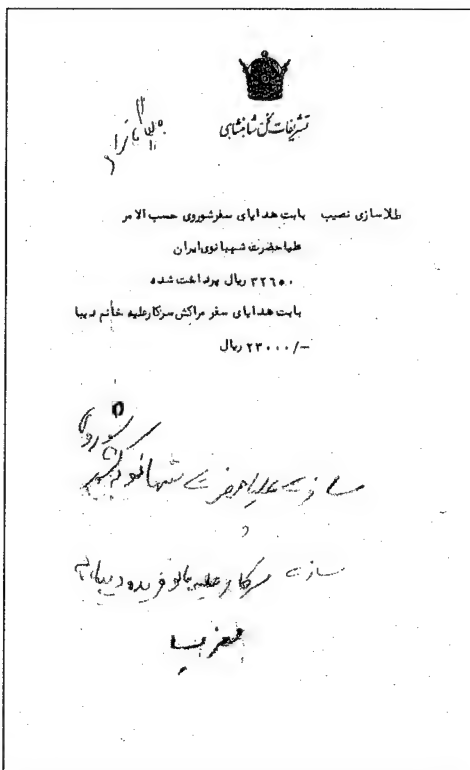 تشریفات کل شاهنشاهی
طلاسازی نصیب بابت هدایای سفر شوروی حسب الامر
علیاحضرت شهبانوی ایران
۳۲۶۵۰ ریال پرداخت شده
بابت هدایای سفر مراکش سرکار علیه خانم دیبا
۲۳۰۰۰/- ریال
شوروی
علیاحضرت شهبانو
و
سرکار علیه بانو فریده دیبا
مغرب